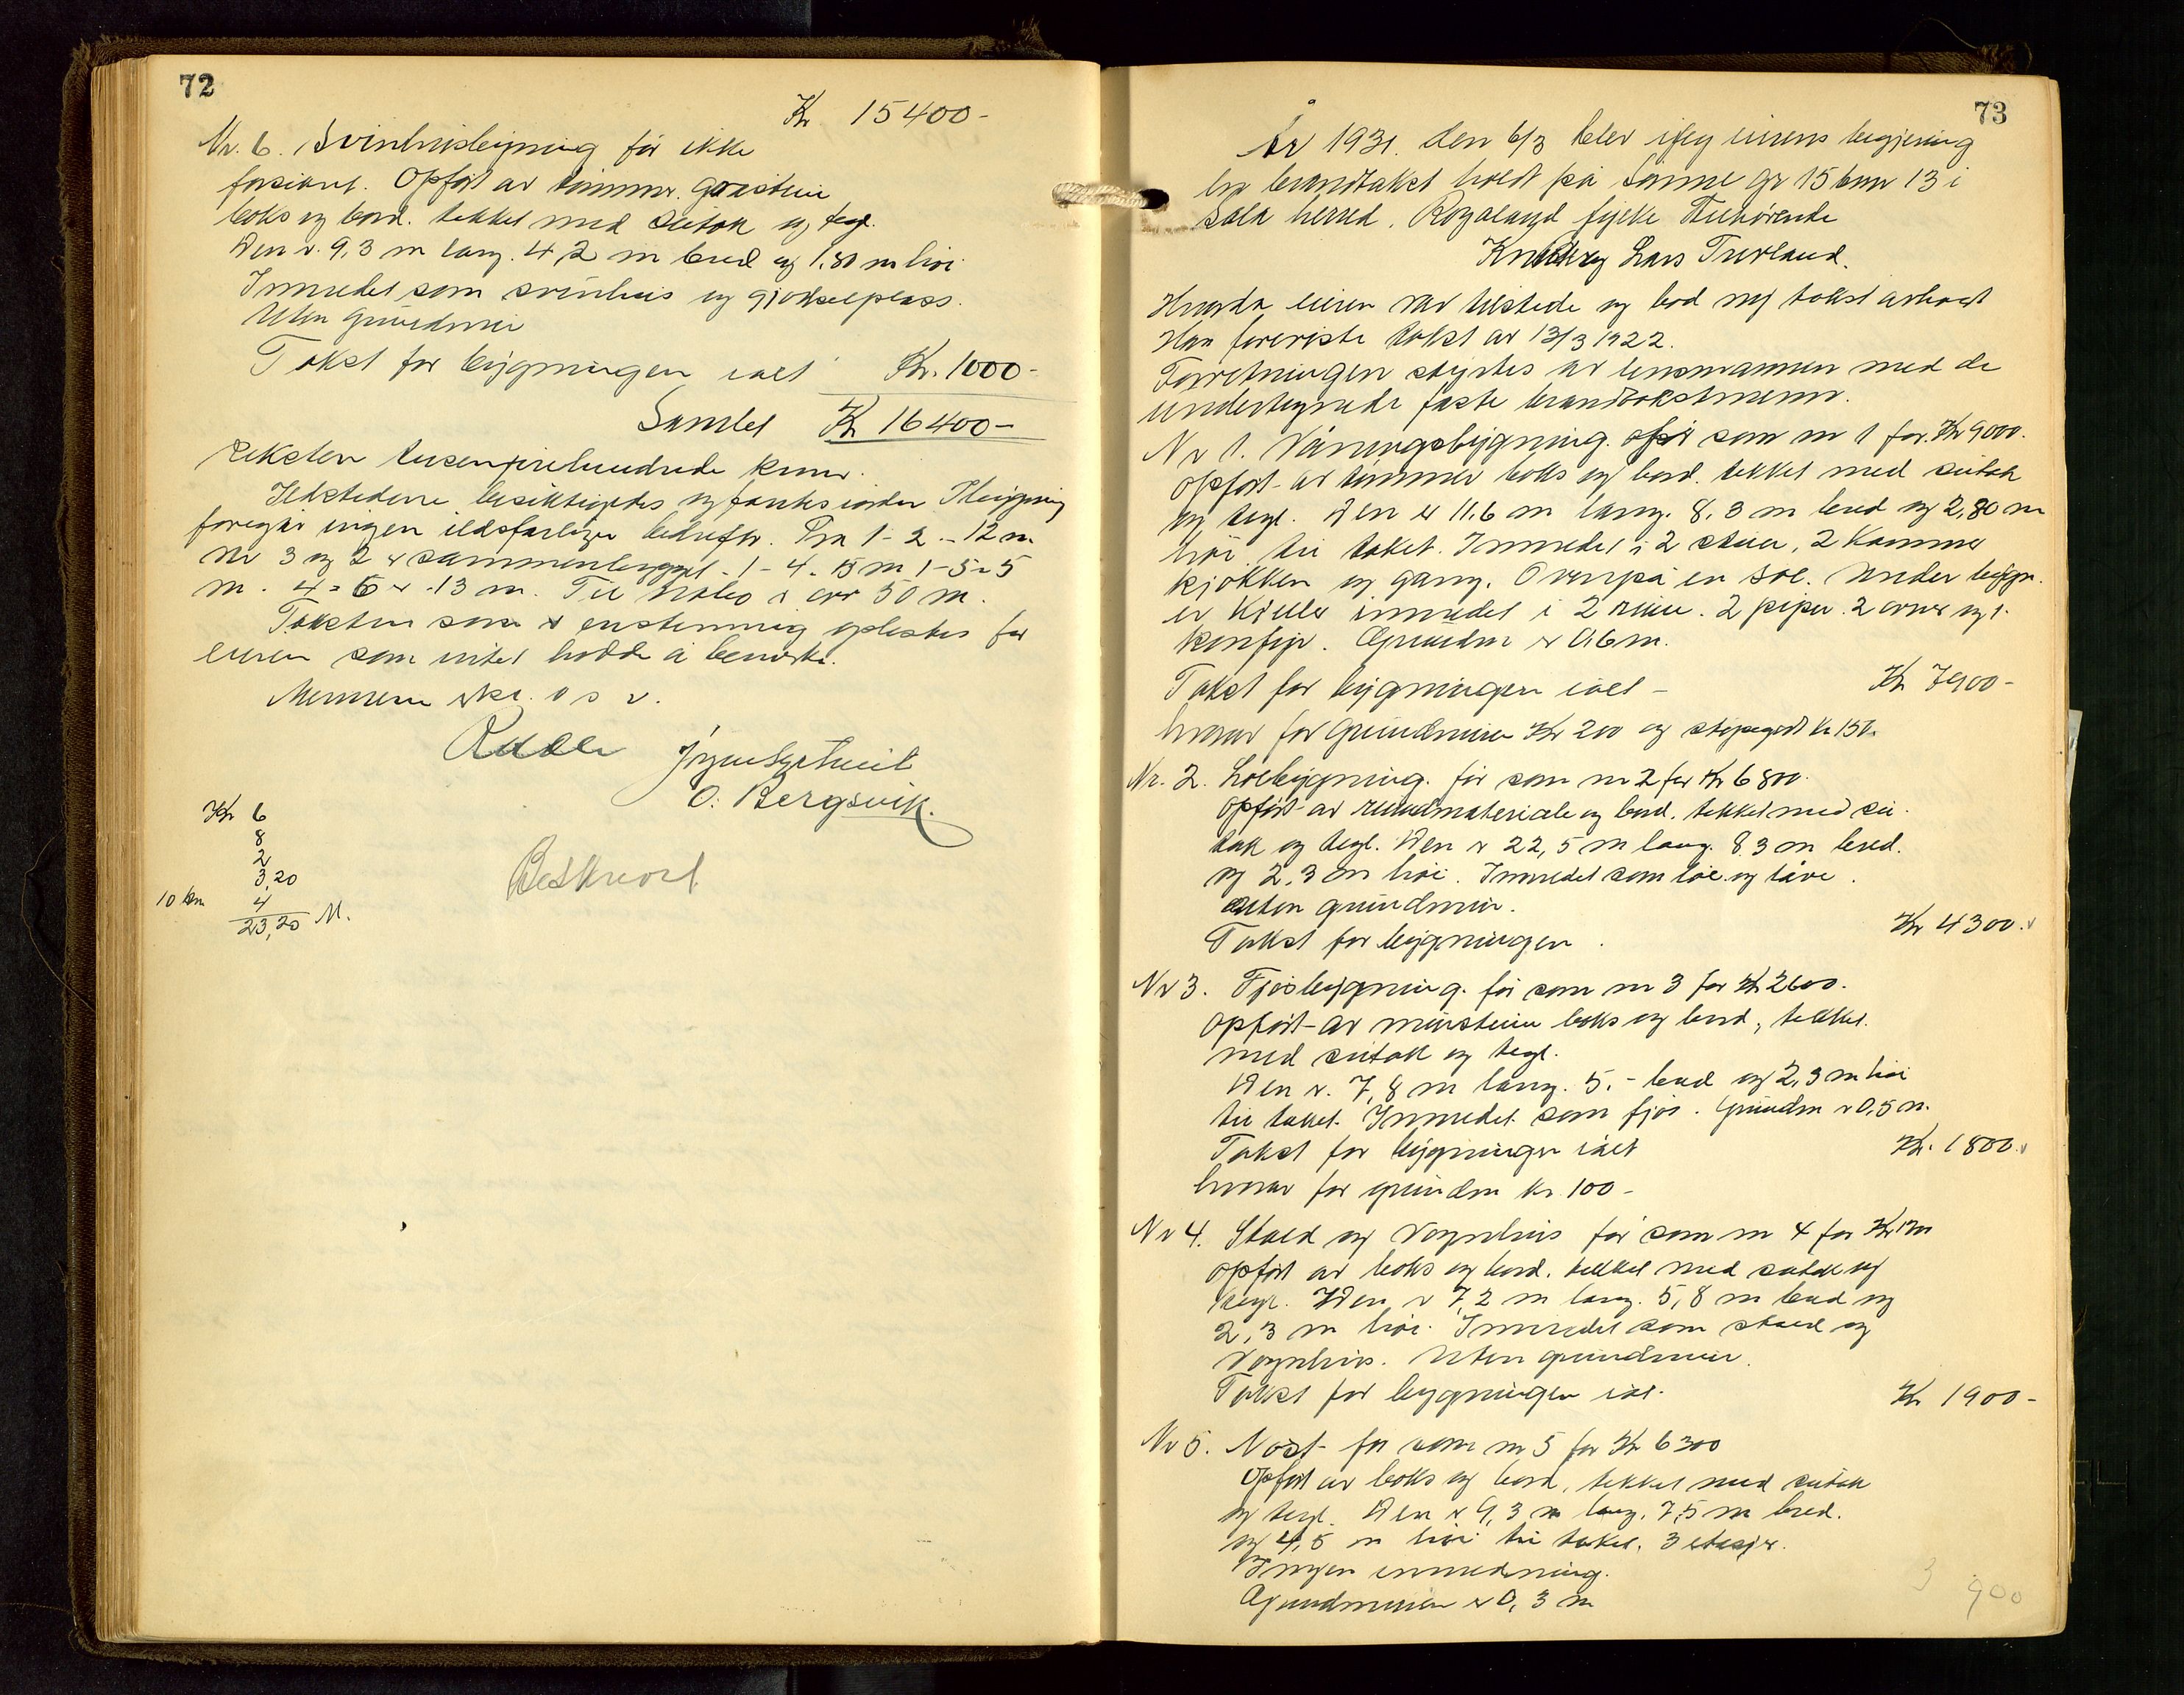 72
Kr 15400-
Nr. 6. Svinhusbygning før ikke
forsikret. Opført av tømmer. graastein
boks og bord. tekket med sutak og tegl.
Den er 9,3 m lang. 4,2 m bred og 1,80 m høi
Innredet som svinhus og gjødselplass.
Uten grundmur
Takst for bygningen ialt Kr. 1000-
Samlet Kr 16400-
seksten tusen firehundrede kroner.
Ildstederne besiktigedes og fantes i orden I bygning
foregår ingen ildsfarlige bedrifter. Fra 1-2 - 12 m.
Nr 3 og 2 er sammenbygget - 1-4. 15 m 1-5 5
m. 4=6 er 13 m. Til nabo er over 50 m.
Taksten som er enstemmig oplestes for
eieren som intet hadde å bemerke.
Mennene o s v.
O. Bergsvik.
Kr 6
8
2
3,20
10 km 4
23,20 M.
Beskrevet
73
År 1931. den 6/3 blev ifølg eierens begjering
brandtakst holdt på Sønne gr 15 bnr 13 i
herred. Rogaland fylke Tilhørende
Knut og Lars Turland.
eieren var tilstede og bad ny takst avholdt
Han foreviste takst av 13/3 1922.
Forretningen styrtes av lensmannen med de
undertegnede faste brandtakstmenn.
Nr 1. Våningsbygning. før som nr 1 for Kr 9000.
Opført av tømmer boks og bord. tekket med sutak
og tegl. Den er 11,6 m lang. 8,3 m bred og 2,80 m
høi til taket. Innredet i 2 stuer, 2 kammer
kjøkken og gang. Ovenpå en sol. Under bygn.
er kjeller innredet i 2 rum. 2 piper. 2 ovner og 1
komfyr. Grundm er 0,6 m.
Takst for bygningen ialt - Kr 7900-
hvorav for grundmuren Kr 200 og støpegods kr 150.
Nr. 2. Løebygning. før som nr 2 for Kr 6800.
Opført av rundmateriale og bord. tekket med su-
tak og tegl. Den er 22,5 m lang. 8,3 m bred.
og 2,3 m høi. Innredet som løe og låve.
uten grundmur.
Takst for bygningen. Kr 4300.
Nr 3. Fjøsbygning. før som nr 3 for Kr 2600.
Opført av murstein boks og bord, tekket.
med sutak og tegl.
Den er. 7,8 m lang. 5.- bred og 2,3 m høi
til taket. Innredet som fjøs. Grundm er 0,5 m.
Takst for bygningen ialt Kr. 1800.
hvorav for grundm kr. 100-
Nr 4. Stald og Vognhus før som nr 4 for Kr
Opført av boks og bord. tekket med sutak og
tegl. Den er 7,2 m lang. 5,8 m bred og
2,3 m høi. Innredet som stald og
Vognhus. Uten grundmur.
Takst for bygningen ial. Kr 1900-
Nr 5. Nøst før som nr 5 for Kr 6300
Opført av boks og bord, tekket med sutak
og tegl. Den er 9,3 m lang. 7,5 m bred.
og 4,5 m høi til taket. 3 etasjer.
Ingen innredning.
Grundmuren er 0,3 m
3 900